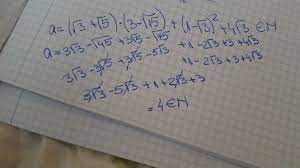 a=(√3+√5)·(3-√15)+(1-√3)²+4√3 ∈N
a=3√3-√45+3√5-√75+1-2√3+3+4√3
3√3-3√5+3√5-5√3+1-2√3+3+4√3
3√3-5√3+1+2√3+3
=4∈N